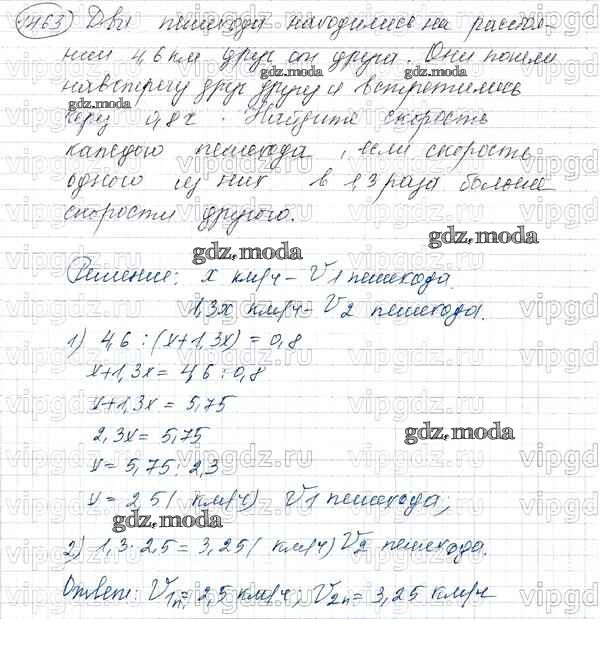 1463) Два пешехода находились на расстоя-
нии 4,6 км друг от друга. Они пошли
навстречу друг другу и встретились
через 0,8 ч. Найдите скорость
каждого пешехода, если скорость
одного из них в 1,3 раза больше
скорости другого.
gdz.moda
Решение: x км/ч – V1 пешехода.
1,3x км/ч – V2 пешехода.
1) 4,6 : (x+1,3x) = 0,8
x+1,3x = 4,6 : 0,8
x+1,3x = 5,75
2,3x = 5,75
x = 5,75 : 2,3
x = 2,5 (км/ч) V1 пешехода;
2) 1,3 · 2,5 = 3,25 (км/ч) V2 пешехода.
Ответ: V1п = 2,5 км/ч; V2п = 3,25 км/ч